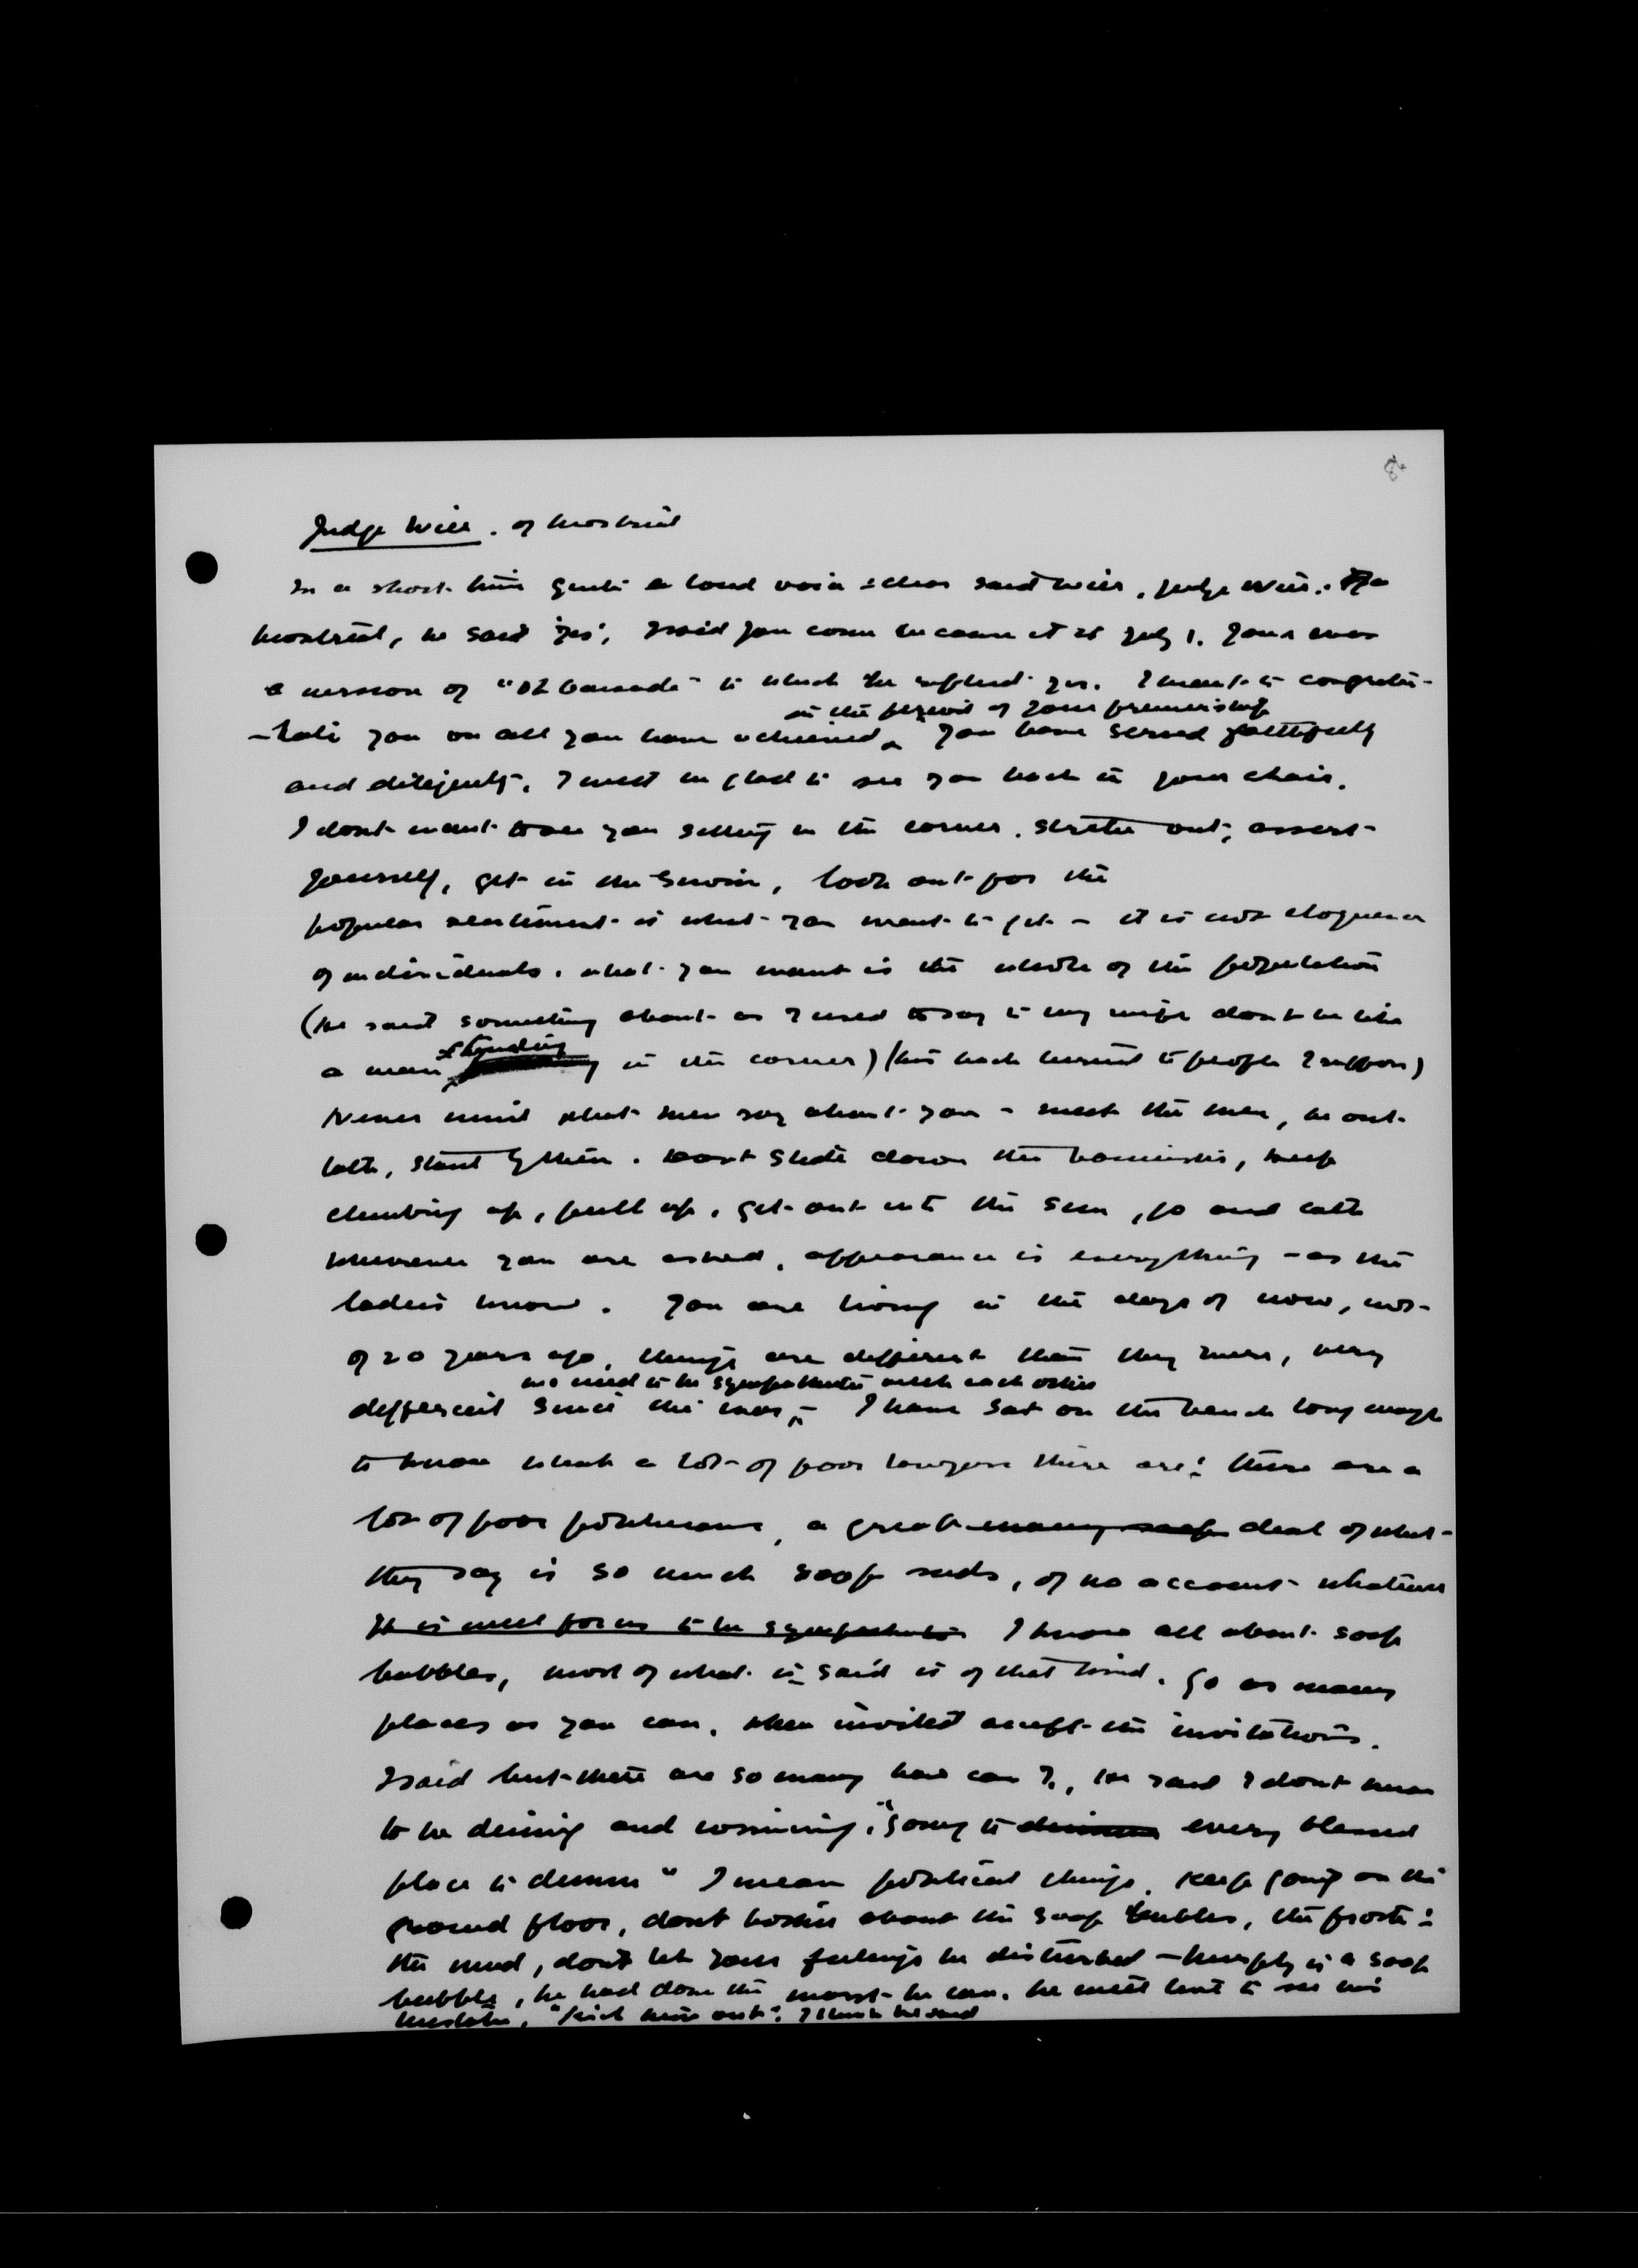 Judge Weir. of Montreal
In a short time quite a loud voice & clear said Weir, Judge Weir. Of
Montreal, he said 'Yes', I said you come because it is July 1. Yours was
a version of "O Canada" to which he replied yes. I want to congratu-
in the period of your premiership
-late you on all you have achieved, You have served faithfully
and diligently. I will be glad to see you back in your chair.
I dont want to see you sitting in the corner. Strike out, assert
yourself, get in the swim, look out for the
popular sentiment is what you want to get - it is not eloquence
of individuals. what you want is the whole of the population
(he said something about as I used to say to my wife dont be like
a man standing in the corner) (his back turned to people I suppose)
Never mind what men say about you - meet the men, be out.
talk, stand by them. Dont slide down the bannister, keep
climbing up, pull up. get out into the sun, go and talk
whenever you are asked, appearance is everything - as the
ladies know. You are living in the days of now, not
of 20 years ago. things are different than they were, very
we need to be sympathetic with each other
different since the war, - I have sat on the bench long enough
to know what a lot of poor lawyers there are: there are a
lot of poor politicians, a great many soap deal of what
they say is so much soap suds, of no account whatever
It is well for us to be sympathetic I know all about soap
bubbles, most of what is said is of that kind. Go as many
places as you can. when invited accept the invitations.
I said but there are so many how can I., He said I dont mean
to be dining and winning. "Going to every blessed
place to dinner" I mean political things. Keep going on the
ground floor, dont bother about the soap bubbles, the froth &
the mud, dont let your feelings be disturbed - Murphy is a soap
bubble, he had done the worst he can. he will live to see his
mistake, "kick him out", I think he said